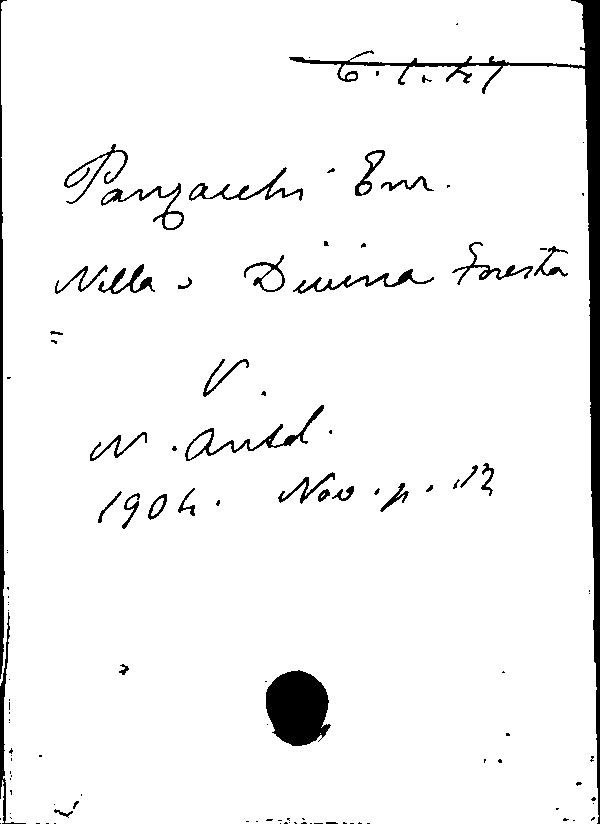 6. 1. 47
Panzacchi Enr.
Nella " Divina Foresta
"
V.
N. Antol.
1904. Nov. p. 13